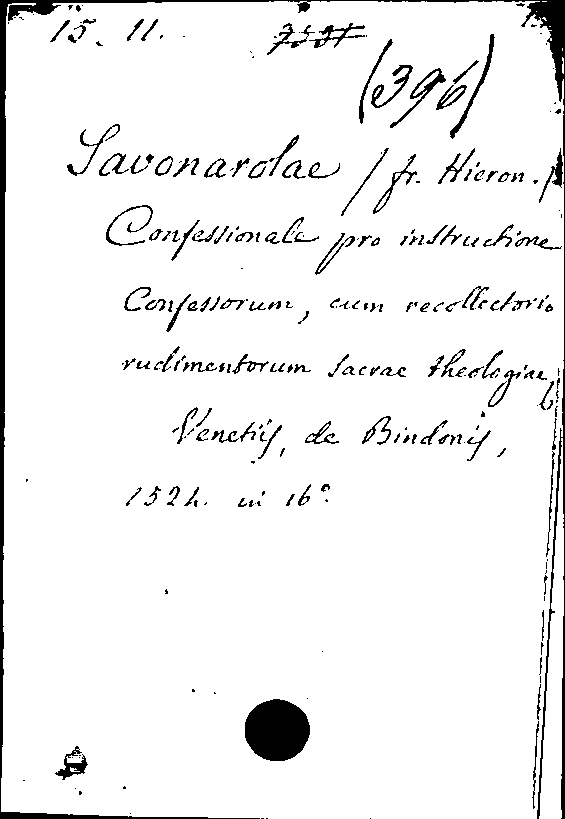 15. 11.
(396)
Savonarolae / fr. Hieron. /
Confessionale pro instructione
Confessorum, cum recollectorio
rudimentorum sacrae theologiae,
Venetiis, de Bindonis,
1524. in 16°.